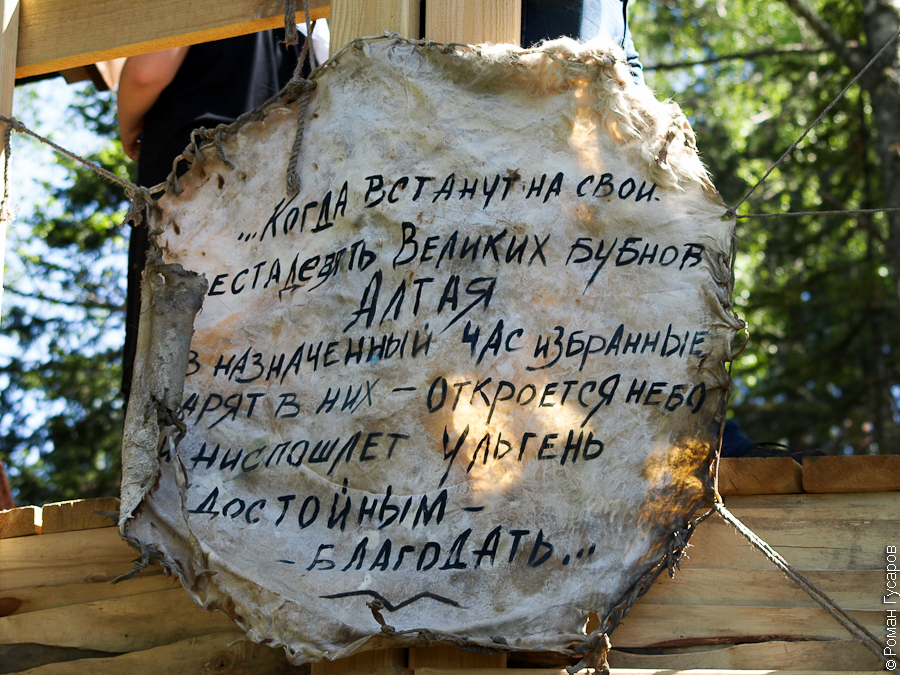 ...Когда встанут на свои
места девять Великих бубнов
Алтая
в назначенный час избранные
ударят в них - Откроется небо
и ниспошлет Ульгень
достойным -
- благодать...
© Роман Гусаров